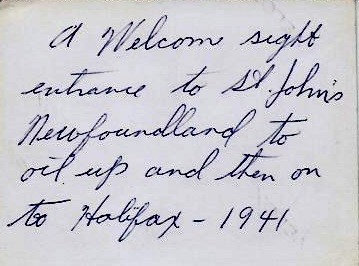 A Welcome sight
entrance to St. John's
Newfoundland to
oil up and then on
to Halifax - 1941